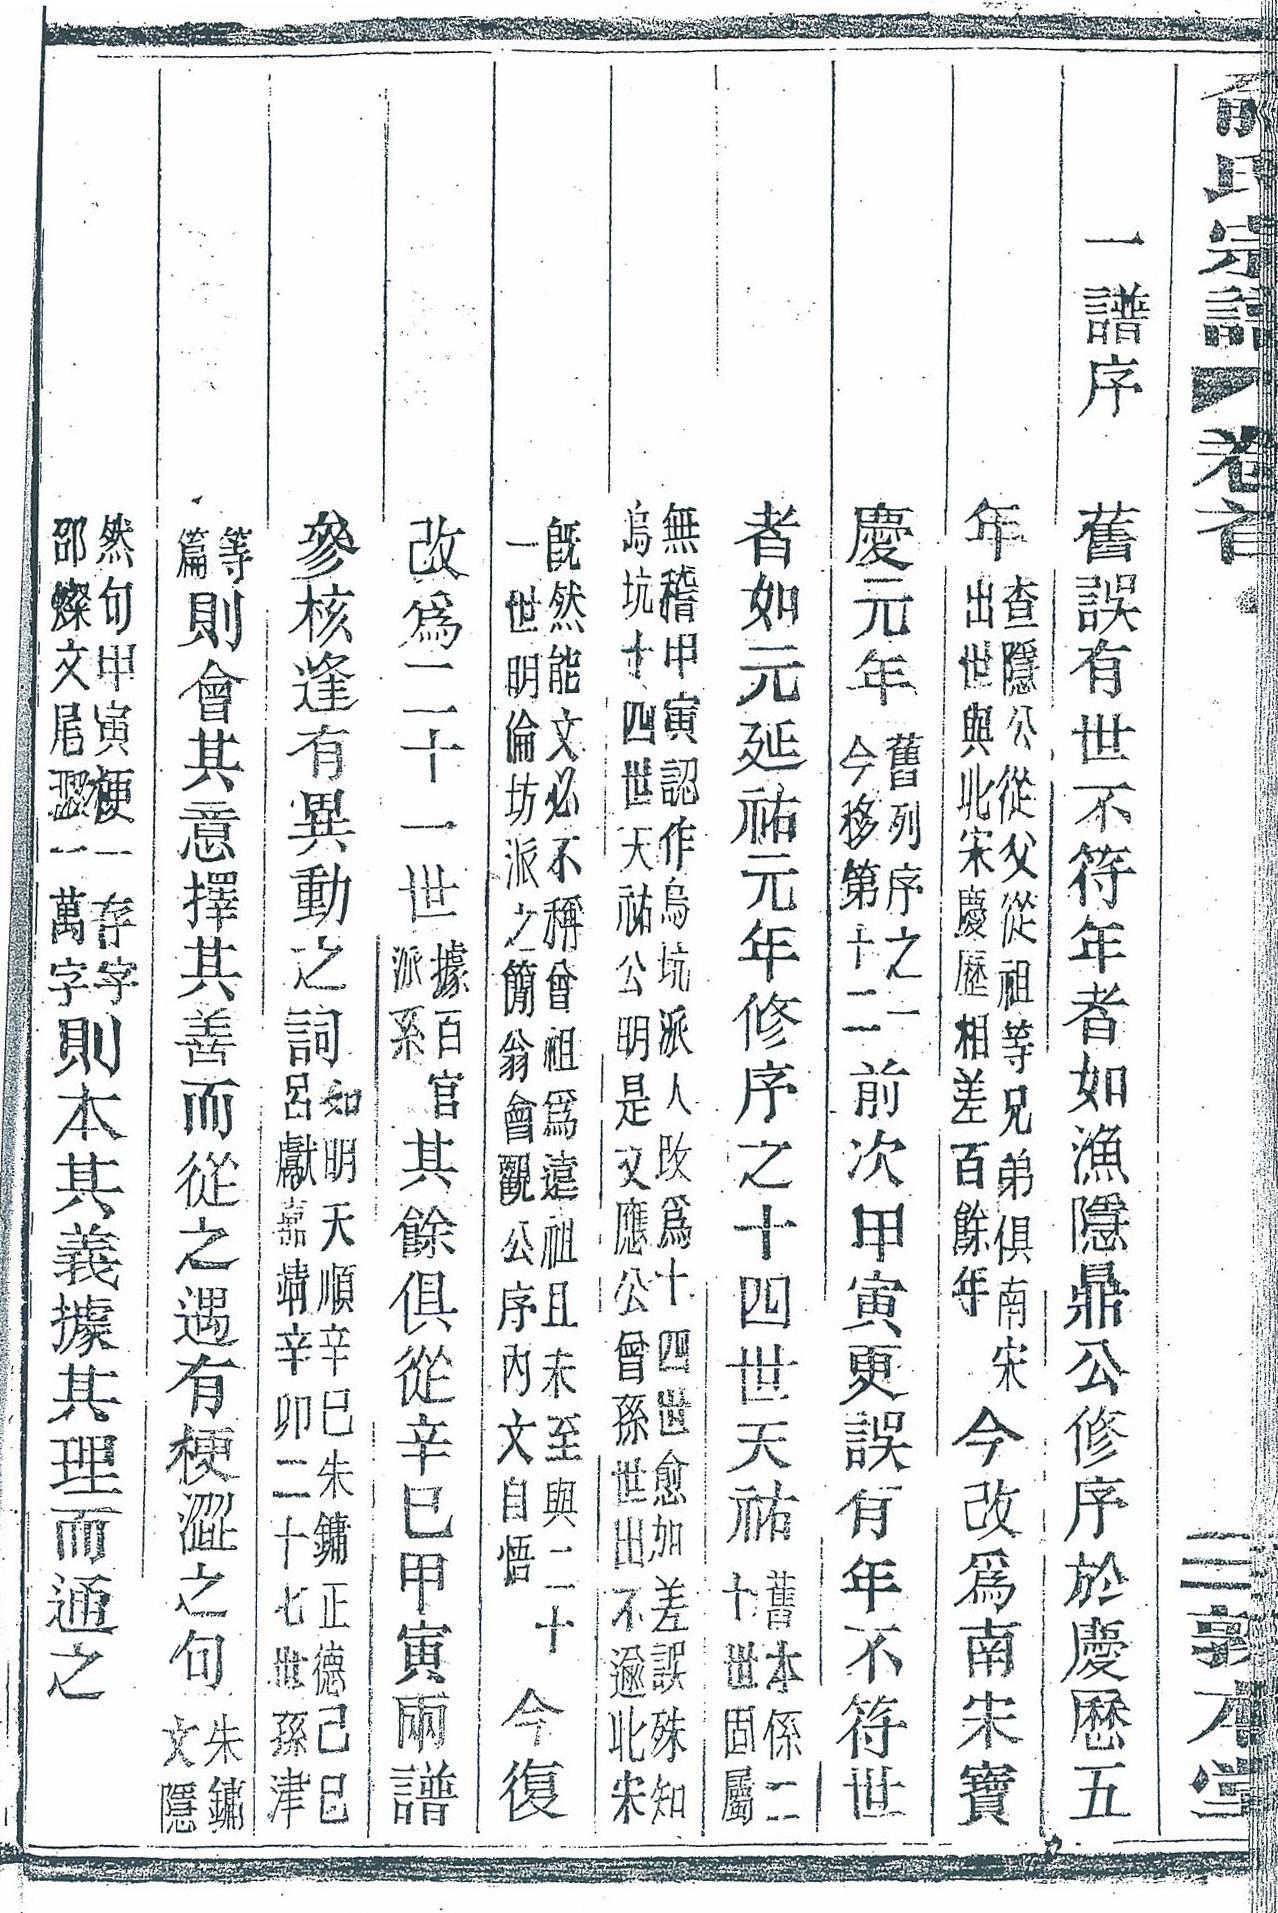 俞氏宗譜 卷首 三 敦本堂
一譜序
舊誤有世不符年者如漁隱鼎公修序於慶歷五
年查隱公從父從祖等兄弟俱南宋出世與北宋慶歷相差百餘年今改爲南宋寶
慶元年舊列序之一今移第十二前次甲寅更誤有年不符世
者如元延祐元年修序之十四世天祐舊本係二十世固屬
無稽甲寅認作烏坑派人改爲十四世愈加差誤殊知烏坑十四世天祐公明是文應公曾孫世出不逾北宋
旣然能文必不稱曾祖爲遠祖且未至與二十一世明倫坊派之簡翁會觀公序內文自悟今復
改爲二十一世據百官派系其餘俱從辛巳甲寅兩譜
參核逢有異動之詞如明天順辛巳朱鏞正德己巳呂獻嘉靖辛卯二十七世孫津
等篇則會其意擇其善而從之遇有梗澀之句朱鏞文隱
然句甲寅梗一存字邵燦文居一萬字則本其義據其理而通之